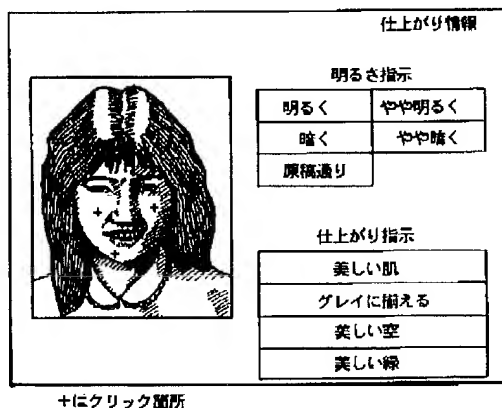 仕上がり情報
明るさ指示
明るく やや明るく
暗く やや暗く
原稿通り
仕上がり指示
美しい肌
グレイに揃える
美しい空
美しい緑
+にクリック箇所